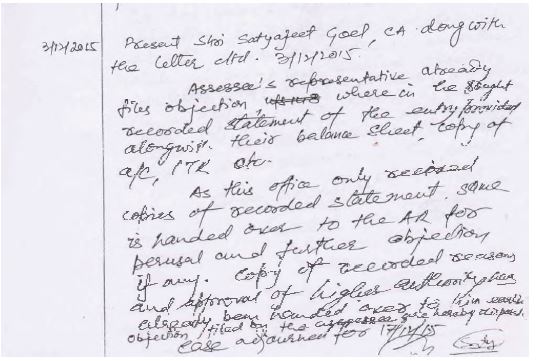 3/12/2015 Present Shri Satyajeet Goel, CA alongwith
the letter dtd. 3/12/2015.
Assessee's representative already
files objection, where in he sought
recorded statement of the entry provided
alongwith their balance sheet, copy of
a/c, ITR etc.
As this office only received
copies of recorded statement. same
is handed over to the AR for
perusal and further objection
if any. Copy of recorded reasons
and approval of higher authorities
already been handed over to him
objection filed by the assessee are hereby disposed.
Case adjourned for 17/12/15